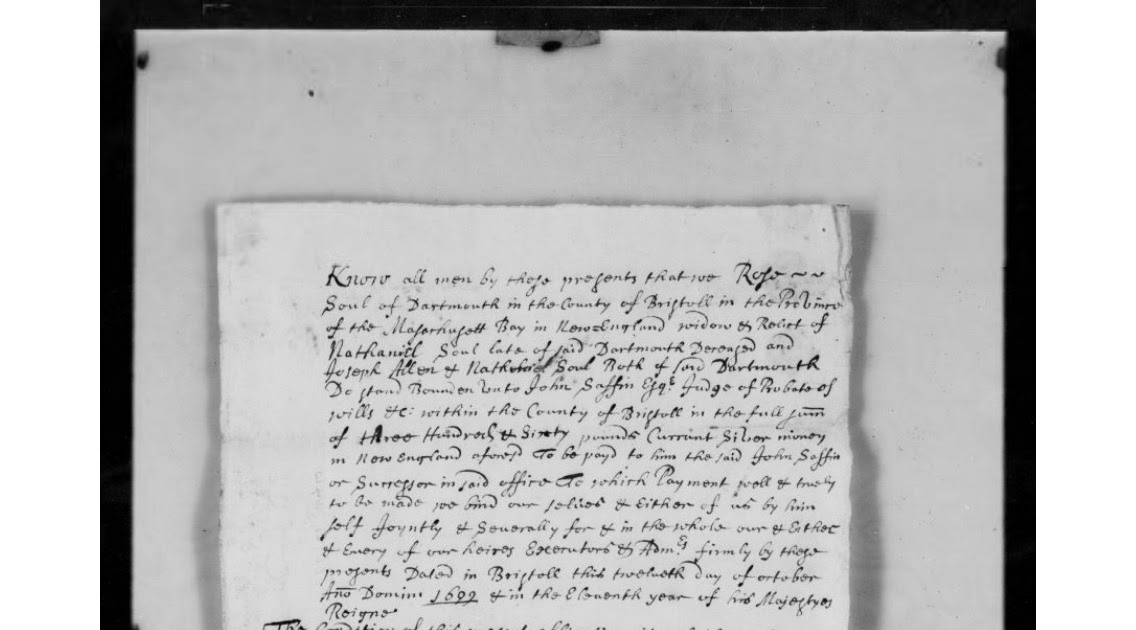 Know all men by these presents that we Rose ~~
Soul of Dartmouth in the County of Bristoll in the Province
of the Masachusett Bay in New=England widow & Relict of
Nathaniell Soul late of said Dartmouth Deceased and
Joseph Allen & Nathaniel Soul Both of said Dartmouth
Do stand Bounden unto John Saffin Esqr. Judge of Probate of
wills &c: within the County of Bristoll in the full sum
of three Hundred & Sixty pounds Currant Silver money
in New England aforesd To be payd to him the said John Saffin
or Successor in said office To which Payment well & truely
to be made we bind our selves & Either of us by him
self Joyntly & Severally for & in the whole our & Either
& Every of our heires Executors & Admrs firmly by these
presents Dated in Bristoll this twelueth day of october
Año Domini 1699 & in the Eleventh year of his Majestyes
Reigne
The Condition of this